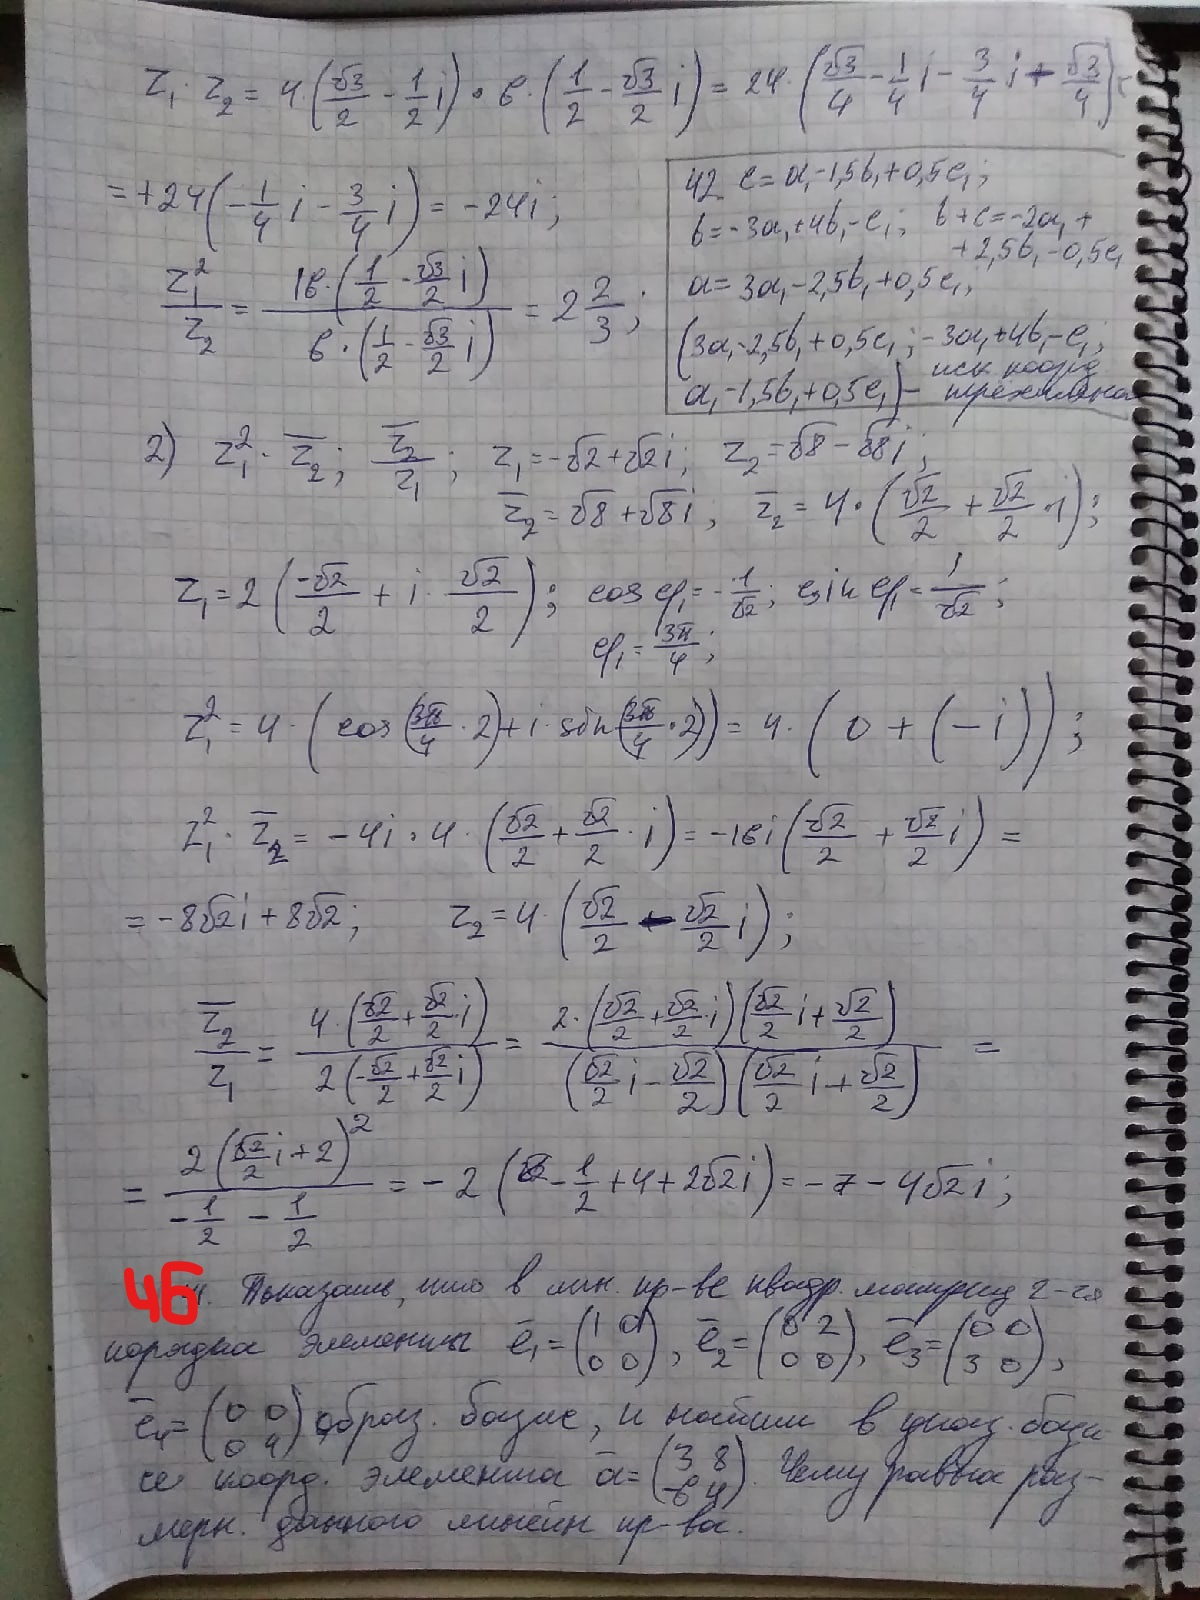 z₁·z₂ = 4·(√3/2 - 1/2 i)·6·(1/2 - √3/2 i) = 24·(√3/4 - 1/4 i - 3/4 i - √3/4) =
= +24(-1/4 i - 3/4 i) = -24i;
z₁²/z₂ = 16·(1/2 - √3/2 i) / 6·(1/2 - √3/2 i) = 2 2/3;
42 c = a₁-1,5b₁+0,5c₁;
b = -3a₁+4b₁-c₁; b+c = -2a₁+
+2,5b₁-0,5c₁
a = 3a₁-2,5b₁+0,5c₁;
(3a₁-2,5b₁+0,5c₁; -3a₁+4b₁-c₁;
a₁-1,5b₁+0,5c₁) - иск коорд
2) z₁²·z̅₂; z̅₂/z₁; z₁ = -√2+√2i; z₂ = √8-√8i;
z̅₂ = √8+√8i; z̅₂ = 4·(√2/2 + √2/2·i);
z₁ = 2(-√2/2 + i·√2/2); cos φ₁ = -1/√2; sin φ₁ = 1/√2;
φ₁ = 3π/4;
z₁² = 4·(cos(3π/4·2)+i·sin(3π/4·2)) = 4·(0+(-i));
z₁²·z̅₂ = -4i·4·(√2/2 + √2/2·i) = -16i(√2/2 + √2/2 i) =
= -8√2i+8√2; z₂ = 4·(√2/2 - √2/2 i);
z̅₂/z₁ = 4·(√2/2+√2/2·i) / 2(-√2/2+√2/2 i) = 2·(√2/2+√2/2·i)(√2/2 i+√2/2) / (√2/2 i-√2/2)(√2/2 i+√2/2) =
= 2(√2/2 i+2)² / (-1/2 - 1/2) = -2(-1/2+4+2√2i) = -7-4√2i;
46 . Показать, что в лин. пр-ве квадр. матриц 2-го
порядка элементы e̅₁=(1 0; 0 0), e̅₂=(0 2; 0 0), e̅₃=(0 0; 3 0),
e̅₄=(0 0; 0 4) образ. базис, и найти в указ. бази-
се коорд. элемента a̅=(3 8; -6 4). Чему равна раз-
мерн. данного линейн пр-ва.